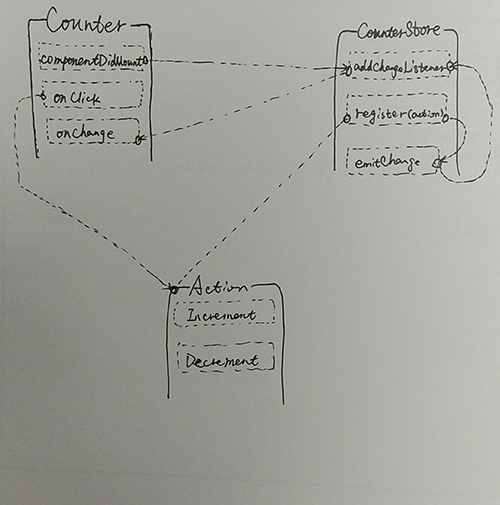 Counter
componentDidMount
onClick
onChange
CounterStore
addChangeListener
register(action)
emitChange
Action
Increment
Decrement